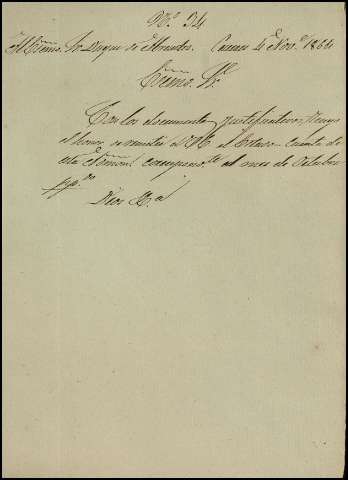 Nº 34
Al Excmo. Sr. Duque de Abrantes. Cuenca 4 de Nov.e 1864
Excmo. Sr.
Con los documentos justificativos, tengo
el honor de remitir á V.E. el Estado-Cuenta de
esta Admon. correspond.te al mes de Octubre
pp.do
Dios &.a